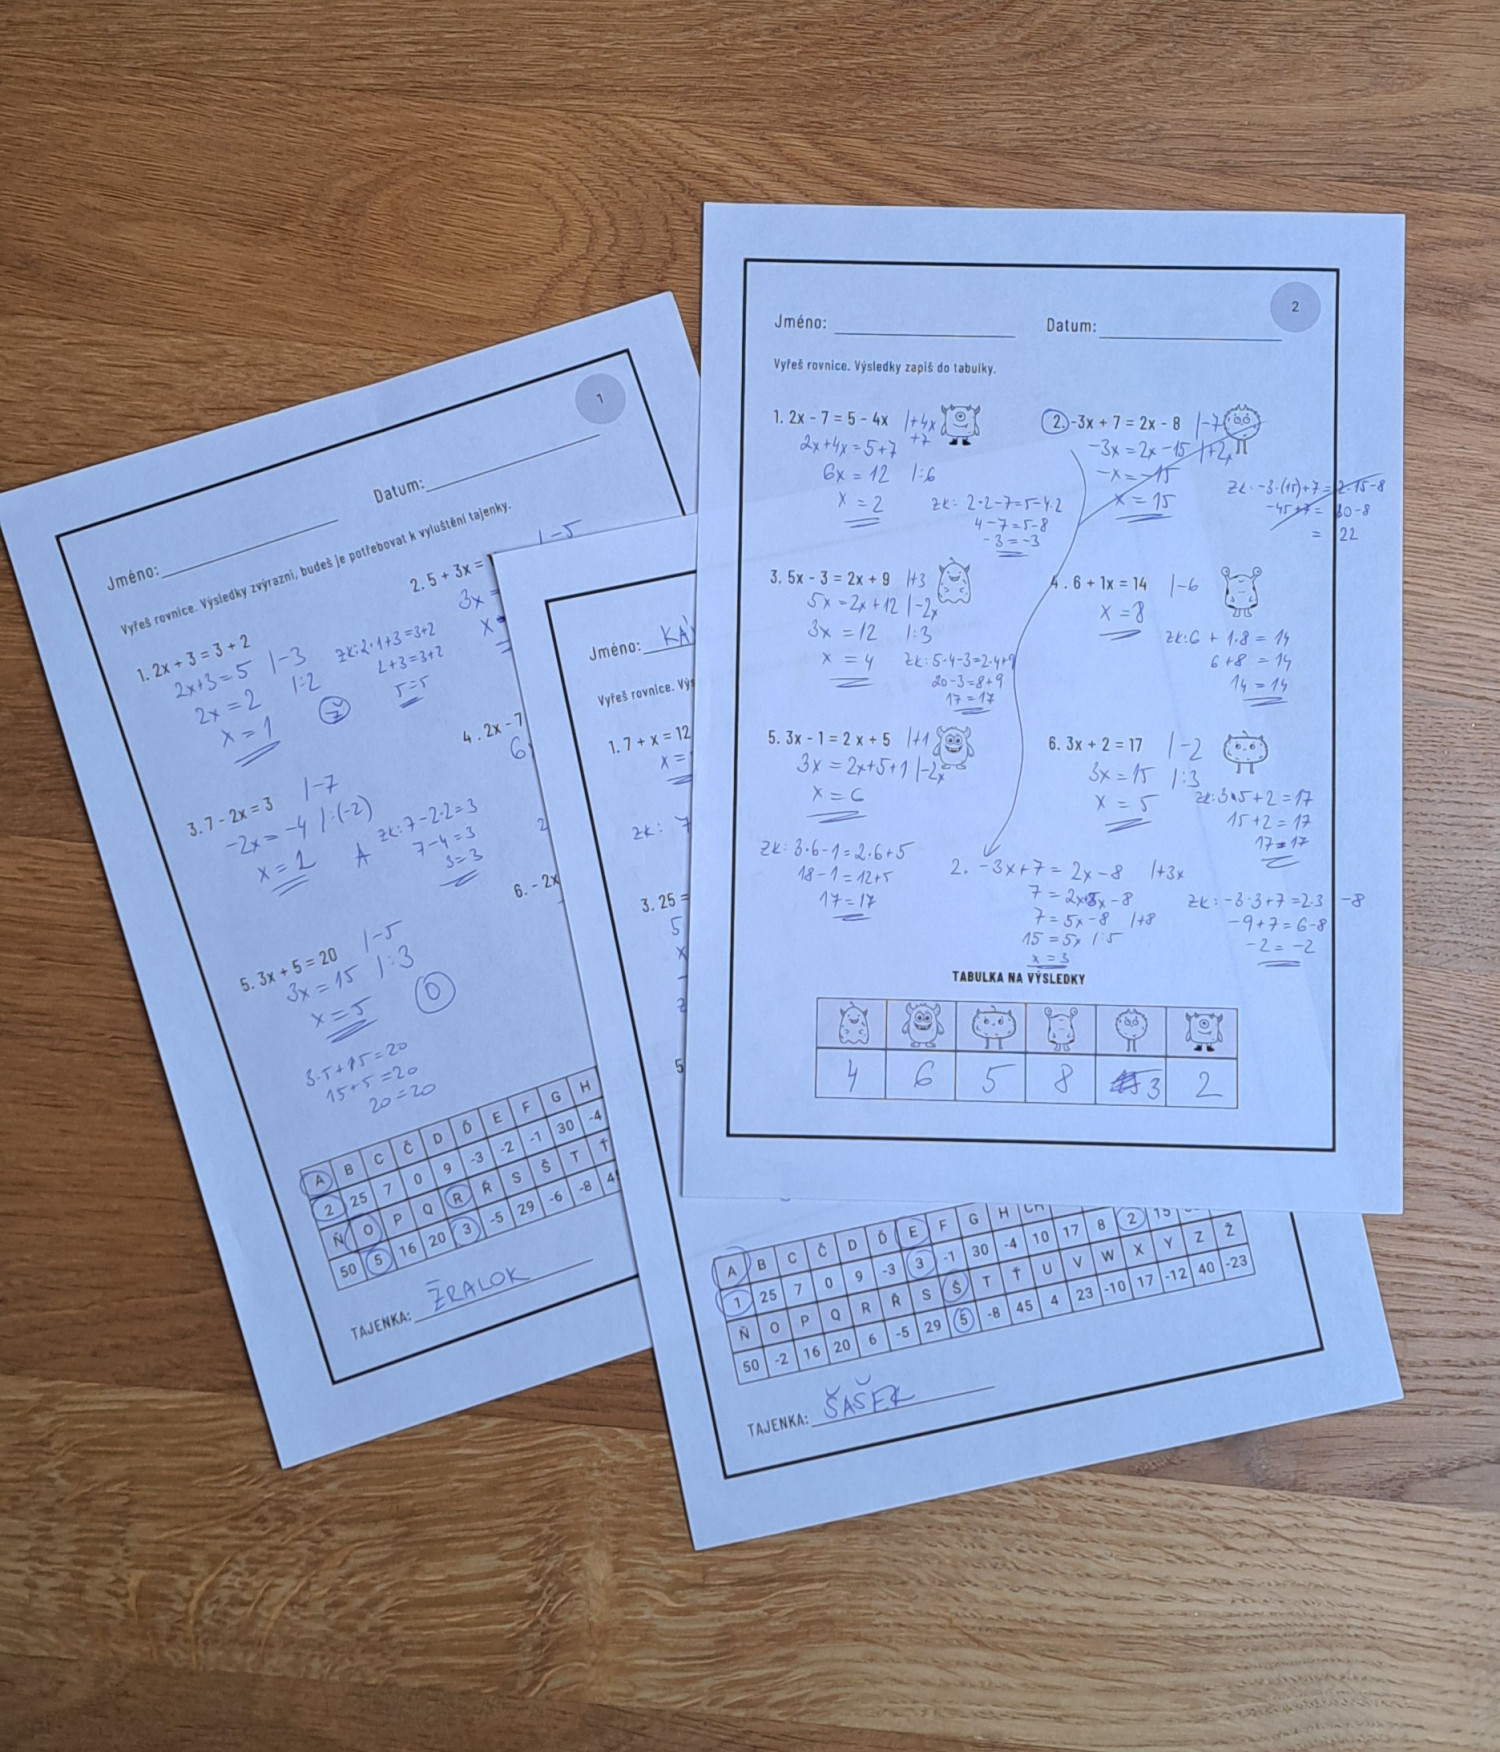 1
Jméno:
Datum:
Vyřeš rovnice. Výsledky zvýrazni, budeš je potřebovat k vyluštění tajenky.
1. 2x + 3 = 3 + 2
2x+3 = 5 |-3
2x = 2 |:2
x = 1
ž
zk: 2·1+3=3+2
2+3=3+2
5=5
2. 5 + 3x =
|-5
3x =
x
3. 7 - 2x = 3 |-7
-2x = -4 |:(-2)
x = 2
A
zk: 7-2·2=3
7-4=3
3=3
4 . 2x - 7
5. 3x + 5 = 20 |-5
3x = 15 |:3
x = 5
O
15+5=20
20=20
6. - 2x
A B C Č D Ď E F G H
2 25 7 0 9 -3 -2 -1 30 -4
Ň O P Q R Ř S Š T Ť
50 5 16 20 3 -5 29 -6 -8
TAJENKA: ŽRALOK
Jméno:
Vyřeš rovnice.
1. 7 + x = 12
x =
zk: 7
3. 25 =
5
x
5
A B C Č D Ď E F G H CH
1 25 7 0 9 -3 3 -1 30 -4 10 17 8 2 15
Ň O P Q R Ř S Š T Ť U V W X Y Z Ž
50 -2 16 20 6 -5 29 5 -8 45 4 23 -10 17 -12 40 -23
TAJENKA: ŠAŠEK
2
Jméno:
Datum:
Vyřeš rovnice. Výsledky zapiš do tabulky.
1. 2x - 7 = 5 - 4x |+4x
+7
2x+4x = 5+7
6x = 12 |:6
x = 2
zk: 2·2-7=5-4·2
4-7=5-8
-3=-3
2. -3x + 7 = 2x - 8 |-7
-3x = 2x -15 |+2x
-x = -15
x = 15
zk: -3·(15)+7 = 2·15-8
-45+7 = 30-8
= 22
3. 5x - 3 = 2x + 9 |+3
5x = 2x+12 |-2x
3x = 12 |:3
x = 4
zk: 5·4-3=2·4+9
20-3=8+9
17=17
4 . 6 + 1x = 14 |-6
x = 8
zk: 6 + 1·8 = 14
6+8 = 14
14 = 14
5. 3x - 1 = 2 x + 5 |+1
3x = 2x+5+1 |-2x
x = 6
zk: 3·6-1=2·6+5
18-1=12+5
17=17
6. 3x + 2 = 17 |-2
3x = 15 |:3
x = 5
zk: 3·5+2=17
15+2=17
17=17
2. -3x+7 = 2x-8 |+3x
7 = 2x+3x-8
7 = 5x-8 |+8
15 = 5x |:5
x = 3
zk: -3·3+7=2·3 -8
-9+7=6-8
-2=-2
TABULKA NA VÝSLEDKY
4 6 5 8 3 2